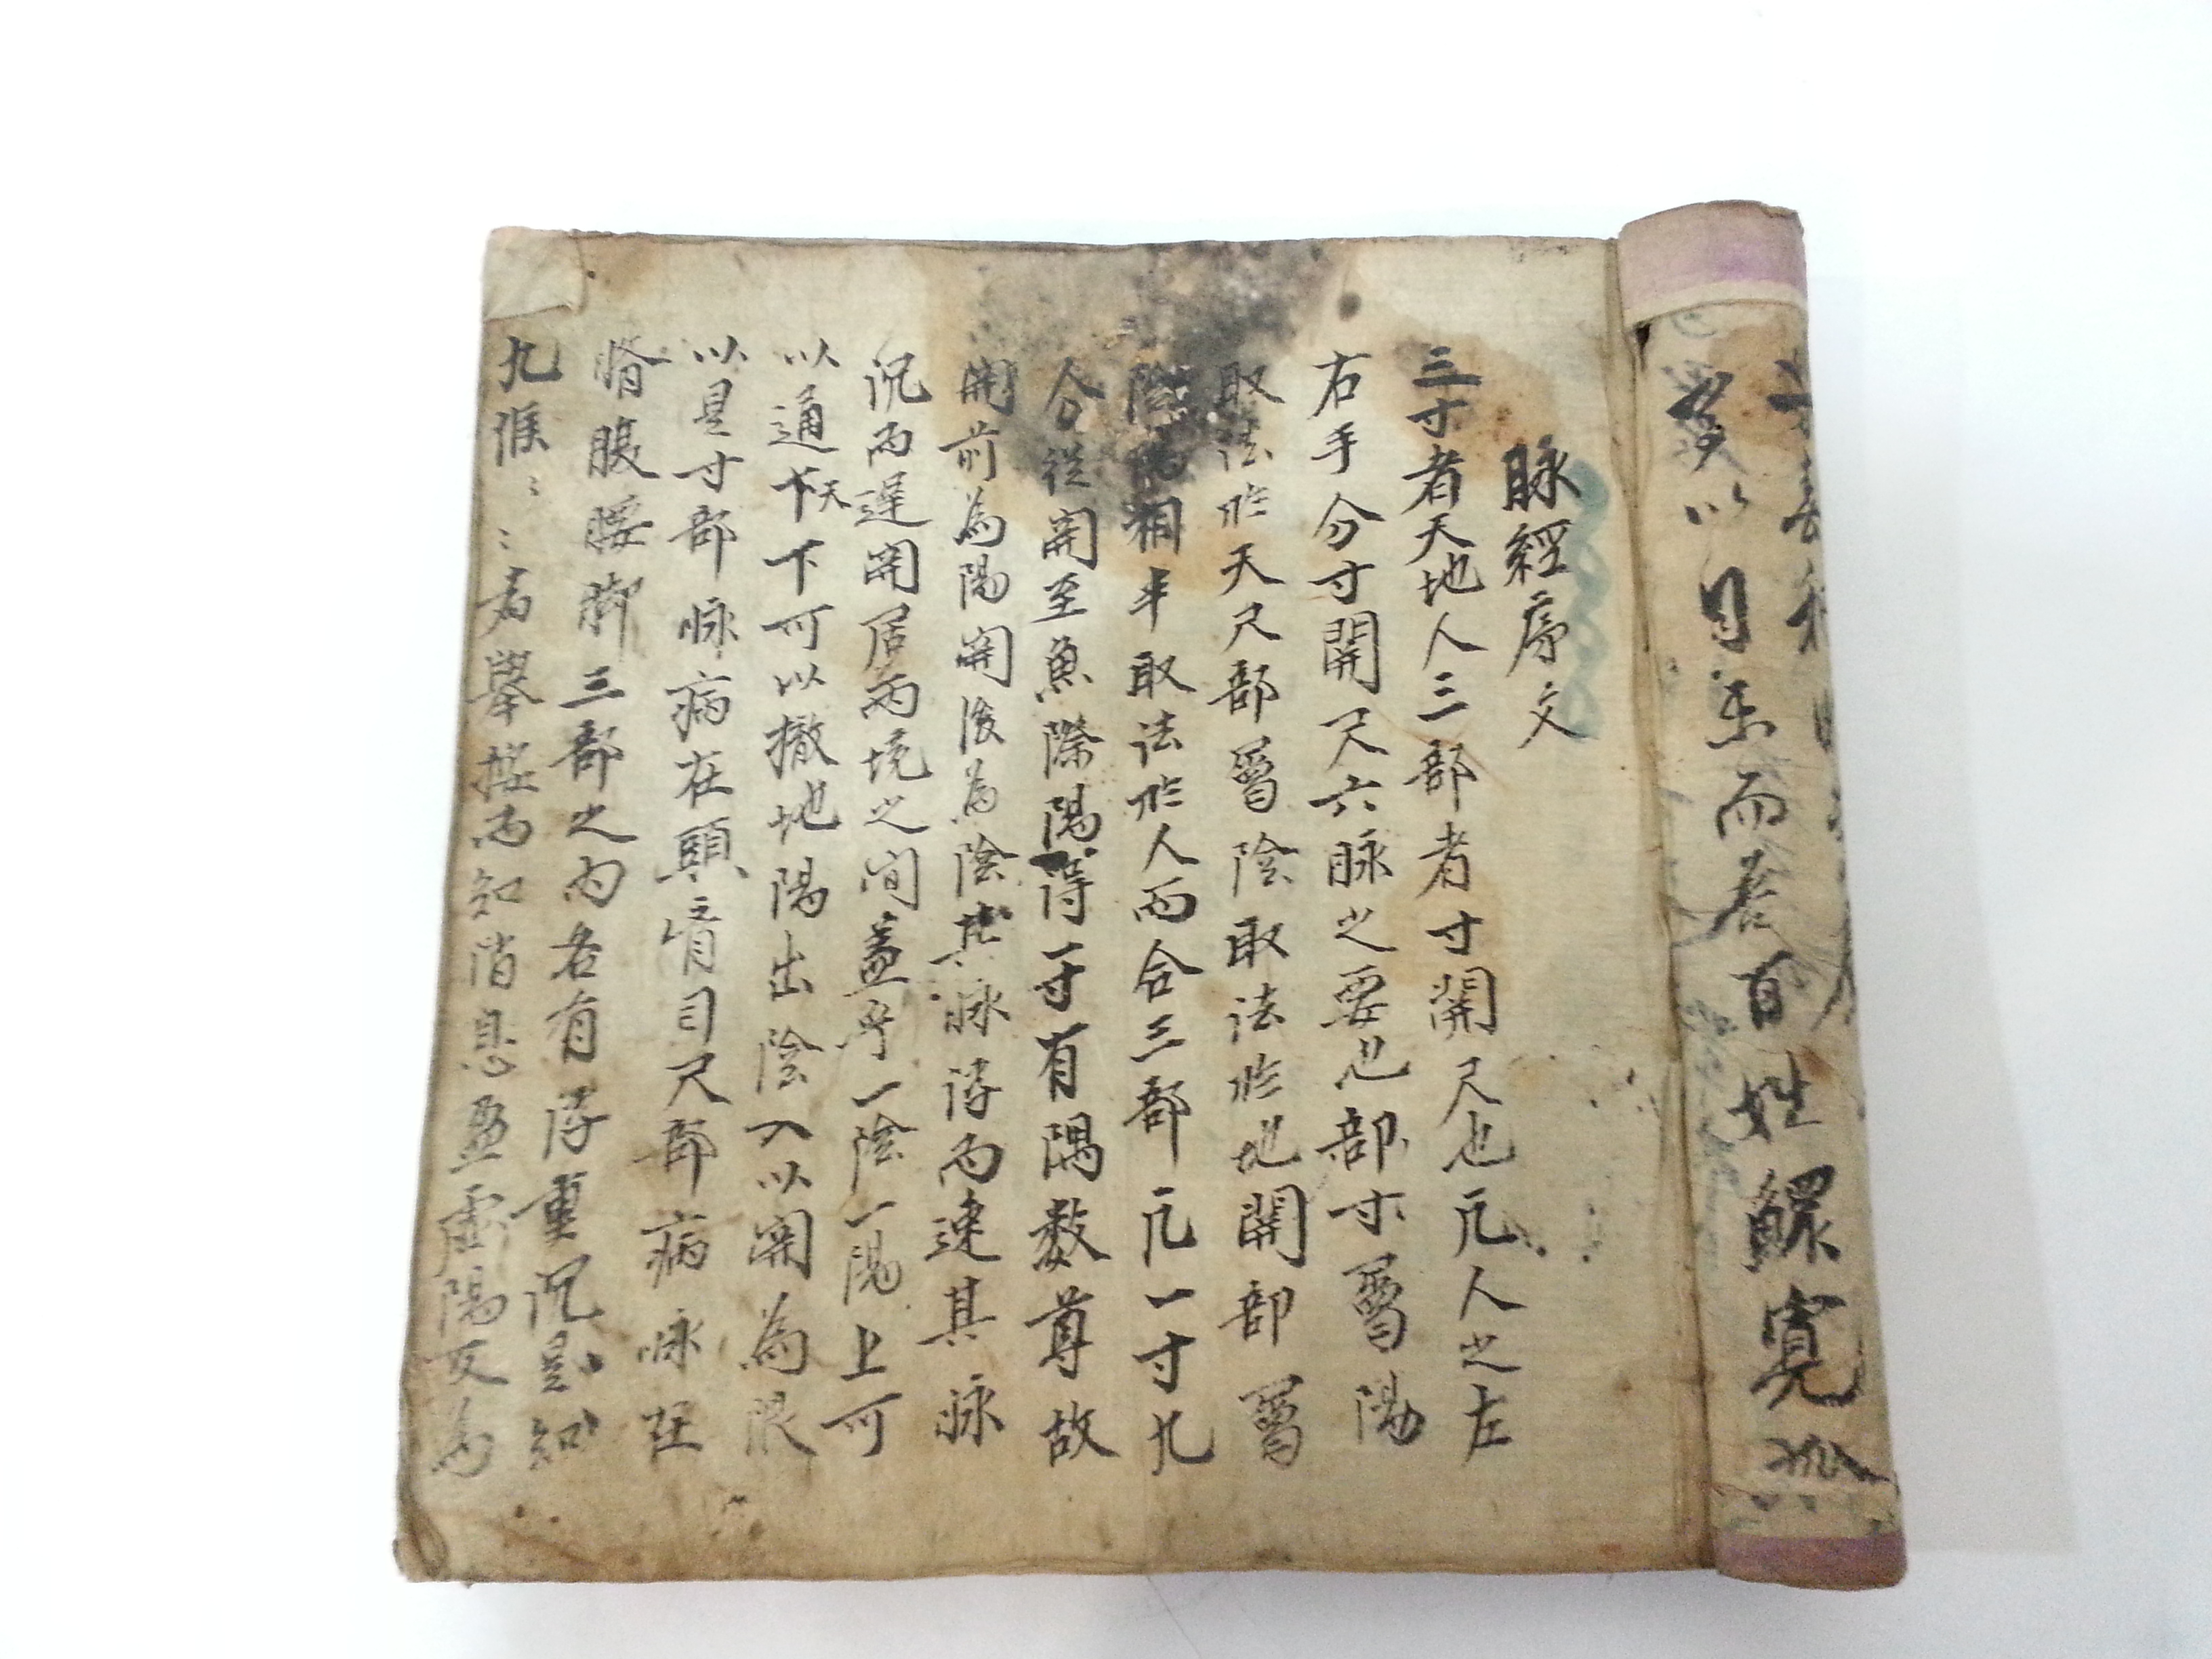 脉經序文
三寸者天地人三部者寸關尺也凡人之左
右手分寸關尺六脉之要也部寸屬陽
取法於天尺部屬陰取法於地關部屬
陰陽相半取法於人而合三部凡一寸九
分從關至魚際陽得一寸有隅數尊故
關前為陽關後為陰其脉浮而速其脉
沉而遲關居兩境之間盖乎一陰一陽上可
以通下天下可以撤地陽出陰入以關為限
以是寸部脉病在頭 目尺部病脉在
腹腰脚三部之内各有浮重沉是知
九候〻〻者舉按而知消息盈虛陽文為
以目 而 百姓鰥寬